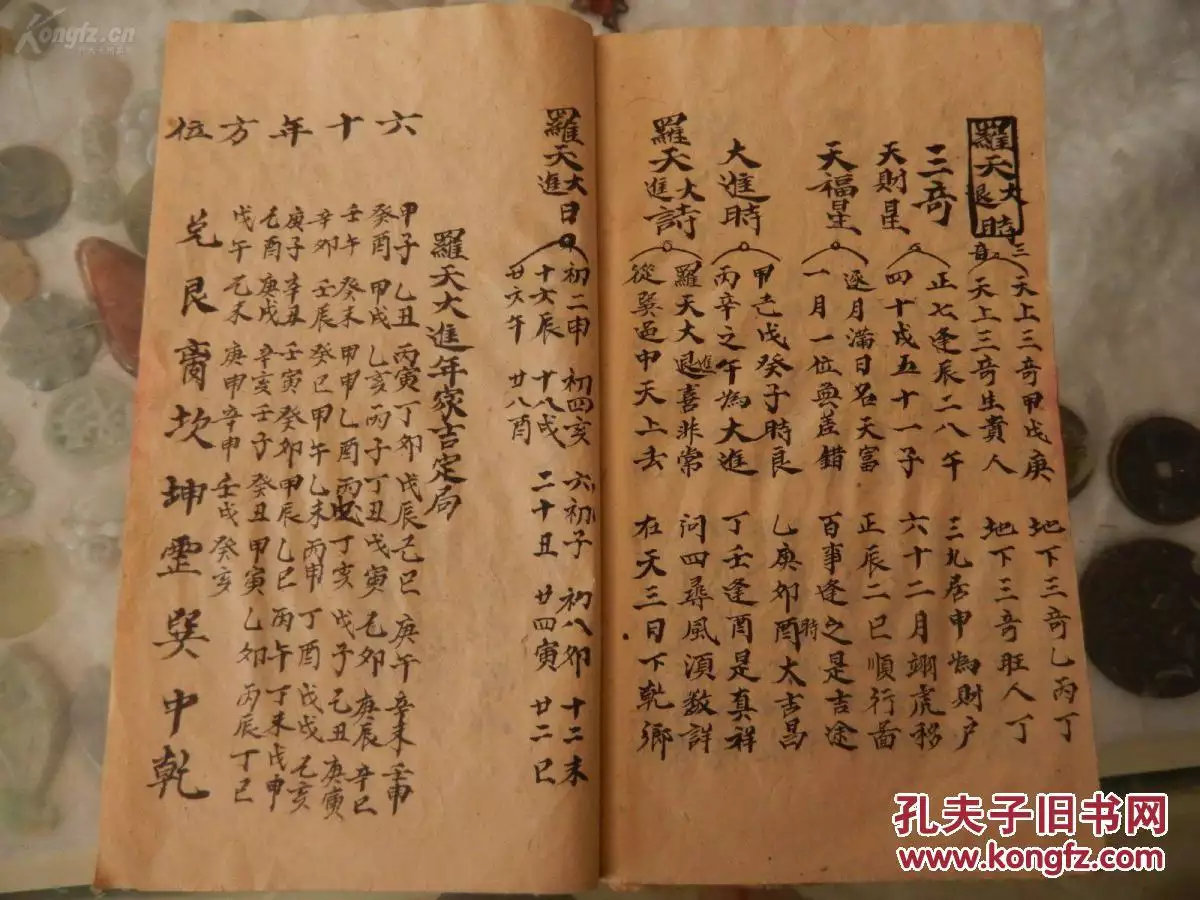 羅天大退時
三音
天上三竒甲戊庚 地下三竒乙丙丁
三竒
天上三竒生貴人 地下三竒旺人丁
天財星
正七逢辰二八午 三九居申為財户
四十戍五十一子 六十二月翊虎移
天福星
逐月滿日名天富 正辰二巳順行面
一月一位無差錯 百事逢之是吉途
大進時
甲己戊癸子時良 乙庚卯酉時大吉昌
丙辛之午為大進 丁壬逢酉是真祥
羅天大進詩
羅天大退進喜非常 问四尋風須数詳
從巽過中天上去 在天三日下乾鄉
羅天大進日
初二申 初四亥 六初子 初八卯 十二未
十六辰 十八戌 二十丑 廿四寅 廿二巳
廿六午 廿八酉
羅天大進年家吉定局
六十年方位
甲子 乙丑 丙寅 丁卯 戊辰 己巳 庚午 辛未 壬申
癸酉 甲戌 乙亥 丙子 丁丑 戊寅 己卯 庚辰 辛巳
壬午 癸未 甲申 乙酉 丙戌 丁亥 戊子 己丑 庚寅
辛卯 壬辰 癸巳 甲午 乙未 丙申 丁酉 戊戌 己亥
庚子 辛丑 壬寅 癸卯 甲辰 乙巳 丙午 丁未 戊申
己酉 庚戌 辛亥 壬子 癸丑 甲寅 乙卯 丙辰 丁巳
戊午 己未 庚申 辛申 壬戌 癸亥
兌 艮 离 坎 坤 震 巽 中 乾
Kongfz.cn
孔夫子旧书网
www.kongfz.com